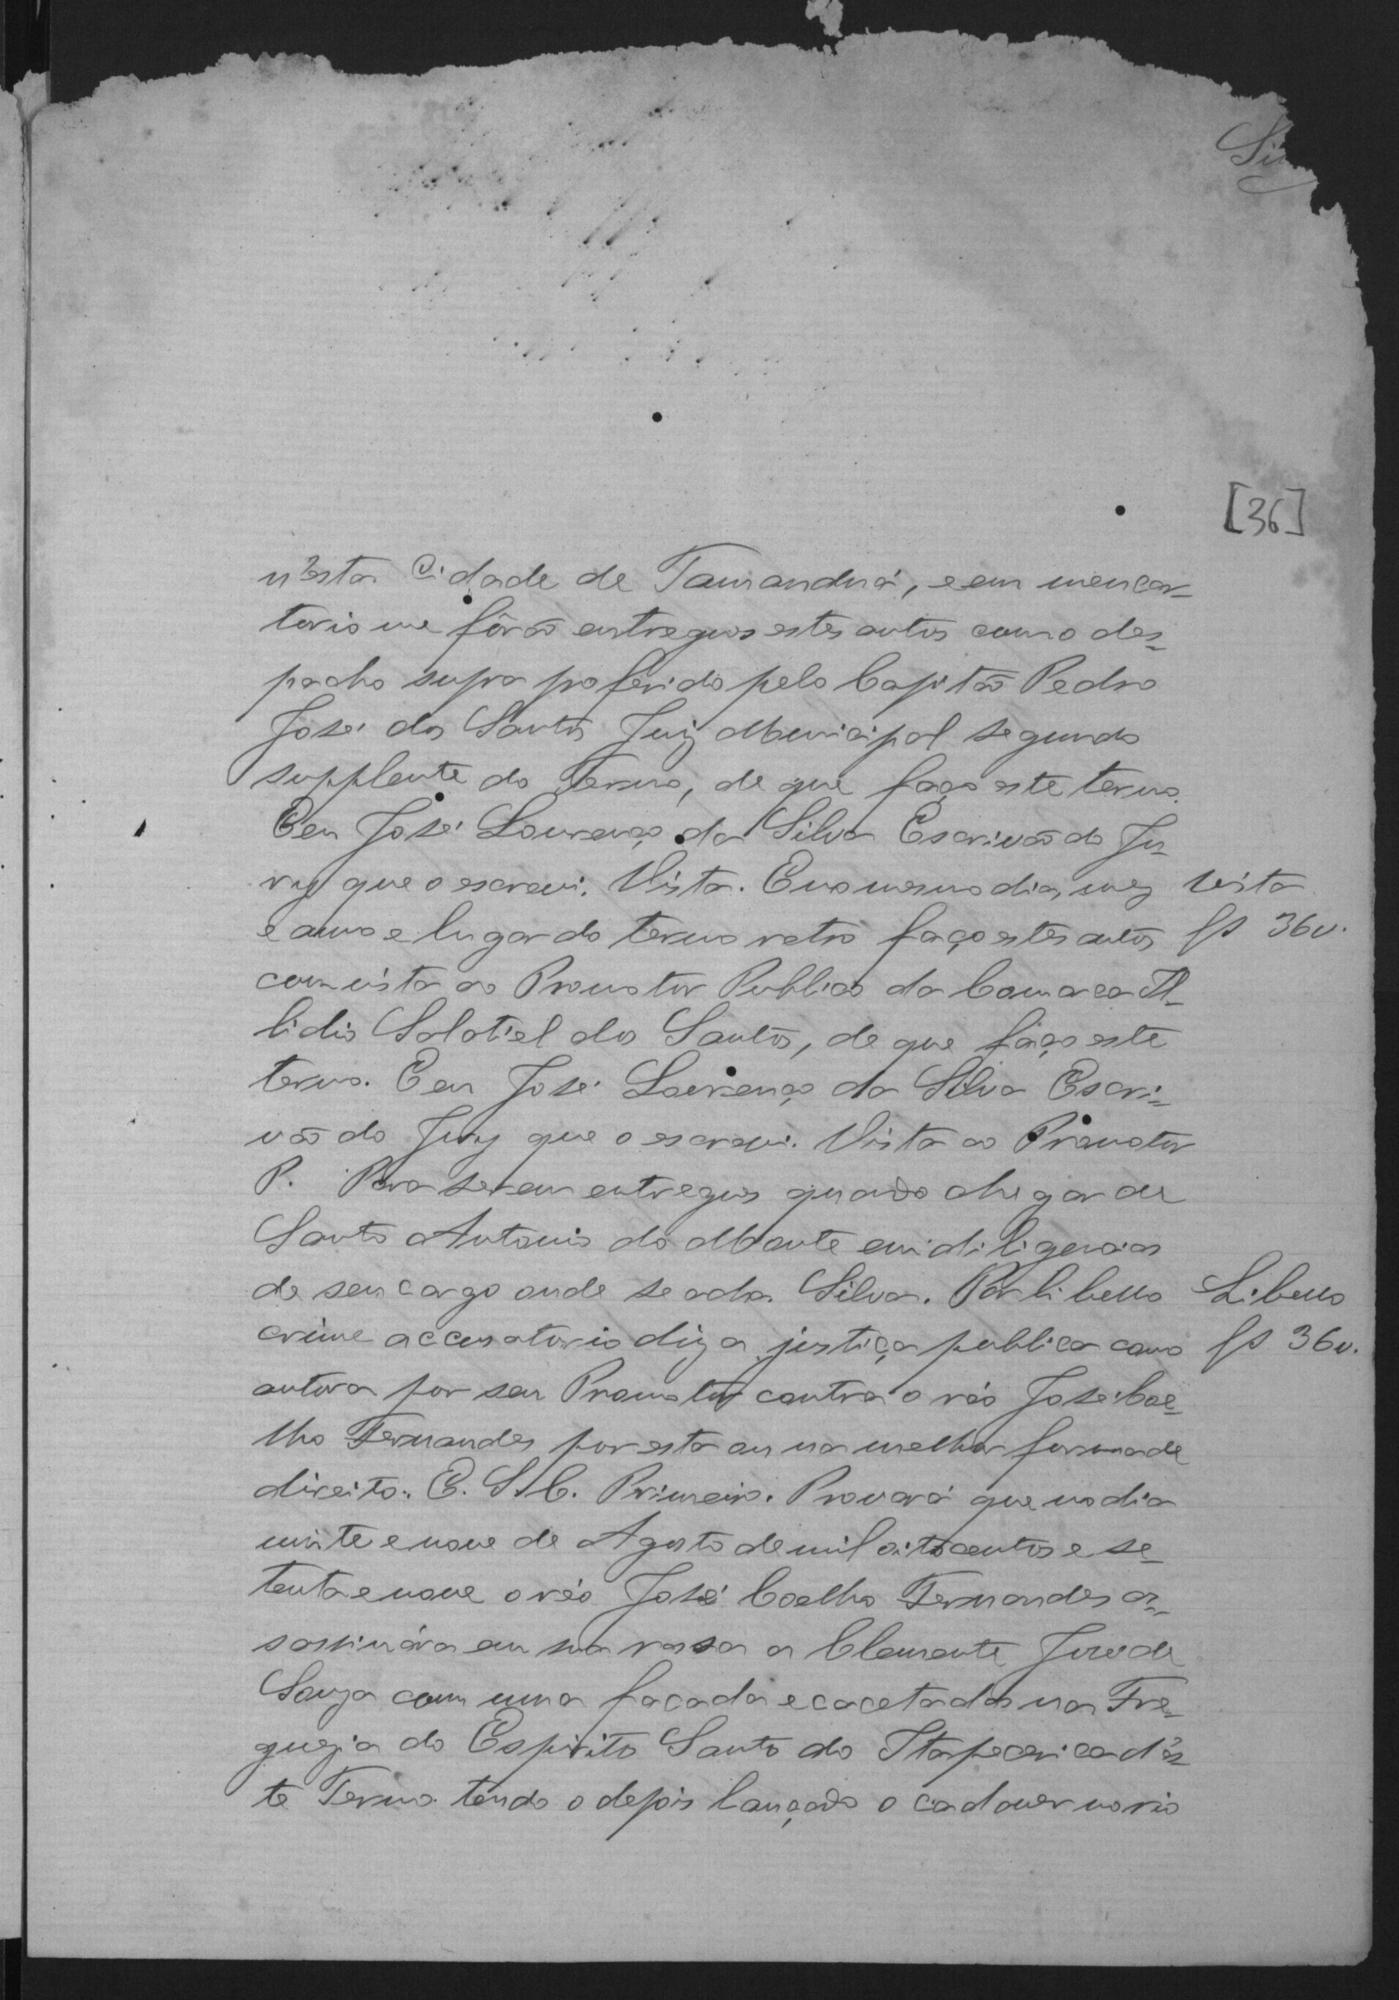 [36]
n'esta Cidade de Tamanduá, e em meu car-
torio me fôrão entregues estes autos com o des-
pacho supra proferido pelo Capitão Pedro
José dos Santos Juiz Municipal segundo
supplente do Termo, de que faço este termo.
Eeu José Lourenço da Silva Escrivão do Ju-
ry que o escrevi. Vista. Eno mesmo dia, mez
e anno e lugar do termo retro faço estes autos
com vista ao Promotor Publico da Comarca
lidio Salatiel dos Santos, de que faço este
termo. Eeu José Lourenço da Silva Escri-
vão do Jury que o escrevi. Vista ao Promotor
P. Para serem entregues quando chegar de
Santo Antonio do Monte em diligencias
de seu cargo onde se acha. Silva. Por libello
crime accusatorio diz a justiça publica como
autora por seu Promotor contra o réo José Coe-
lho Fernandes por esta ou na melhor forma de
direito. E. S. C. Primeiro. Provará que no dia
vinte e nove de Agosto de mil oitocentos e se-
tenta e nove o réo José Coelho Fernandes as-
sassinára em sua casa a Clemente José de
Souza com uma facada e cacetadas na Fre-
guezia do Espirito Santo do Itapecerica d'es-
te Termo tendo o depois lançado o cadaver no rio
Vista
fs 36v.
Libello
fs 36v.